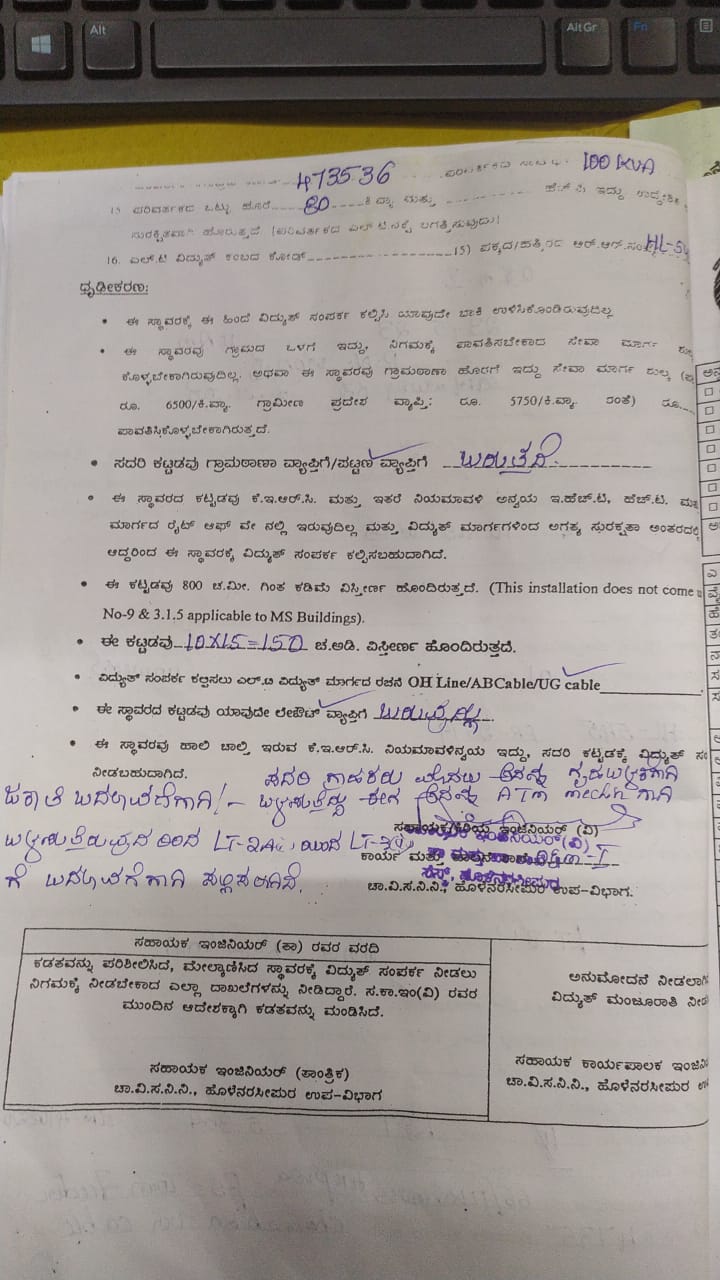 Alt
AltGr
Fn
473536 100 KVA
15 ಪರಿವರ್ತಕದ ಒಟ್ಟು ಹೊರೆ 80 ಕಿ.ವ್ಯಾ ಮತ್ತು ಹೆಚ್.ಪಿ ಇದ್ದು
ಸುರಕ್ಷಿತವಾಗಿ ಹೊಂದಿರುತ್ತದೆ (ಪರಿವರ್ತಕದ ಎಲ್.ಟಿ.ನಕ್ಷೆ ಲಗತ್ತಿಸುವುದು)
16. ಎಲ್.ಟಿ ವಿದ್ಯುತ್ ಕಂಬದ ಕೋಡ್ 15) ಪಕ್ಕದ/ಹತ್ತಿರದ ಆರ್.ಆರ್.ಸಂಖ್ಯೆ
ಧೃಢೀಕರಣ:
• ಈ ಸ್ಥಾವರಕ್ಕೆ ಈ ಹಿಂದೆ ವಿದ್ಯುತ್ ಸಂಪರ್ಕ ಕಲ್ಪಿಸಿ ಯಾವುದೇ ಬಾಕಿ ಉಳಿಸಿಕೊಂಡಿರುವುದಿಲ್ಲ
• ಈ ಸ್ಥಾವರವು ಗ್ರಾಮದ ಒಳಗೆ ಇದ್ದು, ನಿಗಮಕ್ಕೆ ಪಾವತಿಸಬೇಕಾದ ಸೇವಾ ಮಾರ್ಗ
ಕೊಳ್ಳಬೇಕಾಗಿರುವುದಿಲ್ಲ. ಅಥವಾ ಈ ಸ್ಥಾವರವು ಗ್ರಾಮಠಾಣಾ ಹೊರಗೆ ಇದ್ದು ಸೇವಾ ಮಾರ್ಗ ಶುಲ್ಕ
ರೂ. 6500/ಕಿ.ವ್ಯಾ. ಗ್ರಾಮೀಣ ಪ್ರದೇಶ ವ್ಯಾಪ್ತಿ: ರೂ. 5750/ಕಿ.ವ್ಯಾ. ರಂತೆ) ರೂ.
ಪಾವತಿಸಿಕೊಳ್ಳಬೇಕಾಗಿರುತ್ತದೆ.
• ಸದರಿ ಕಟ್ಟಡವು ಗ್ರಾಮಠಾಣಾ ವ್ಯಾಪ್ತಿಗೆ/ಪಟ್ಟಣ ವ್ಯಾಪ್ತಿಗೆ ಬರುತ್ತದೆ.
• ಈ ಸ್ಥಾವರದ ಕಟ್ಟಡವು ಕೆ.ಇ.ಆರ್.ಸಿ. ಮತ್ತು ಇತರೆ ನಿಯಮಾವಳಿ ಅನ್ವಯ ಇ.ಹೆಚ್.ಟಿ, ಹೆಚ್.ಟಿ.
ಮಾರ್ಗದ ರೈಟ್ ಆಫ್ ವೇ ನಲ್ಲಿ ಇರುವುದಿಲ್ಲ ಮತ್ತು ವಿದ್ಯುತ್ ಮಾರ್ಗಗಳಿಂದ ಅಗತ್ಯ ಸುರಕ್ಷತಾ
ಆದ್ದರಿಂದ ಈ ಸ್ಥಾವರಕ್ಕೆ ವಿದ್ಯುತ್ ಸಂಪರ್ಕ ಕಲ್ಪಿಸಬಹುದಾಗಿದೆ.
• ಈ ಕಟ್ಟಡವು 800 ಚ.ಮೀ. ಗಿಂತ ಕಡಿಮೆ ವಿಸ್ತೀರ್ಣ ಹೊಂದಿರುತ್ತದೆ. (This installation does not come
No-9 & 3.1.5 applicable to MS Buildings).
• ಈ ಕಟ್ಟಡವು 10X15=150 ಚ.ಅಡಿ. ವಿಸ್ತೀರ್ಣ ಹೊಂದಿರುತ್ತದೆ.
• ವಿದ್ಯುತ್ ಸಂಪರ್ಕ ಕಲ್ಪಸಲು ಎಲ್.ಟಿ ವಿದ್ಯುತ್ ಮಾರ್ಗದ ರಚನೆ OH Line/ABCable/UG cable
• ಈ ಸ್ಥಾವರದ ಕಟ್ಟಡವು ಯಾವುದೇ ಲೇಔಟ್ ವ್ಯಾಪ್ತಿಗೆ ಬರುವುದಿಲ್ಲ.
• ಈ ಸ್ಥಾವರವು ಹಾಲಿ ಚಾಲ್ತಿ ಇರುವ ಕೆ.ಇ.ಆರ್.ಸಿ. ನಿಯಮಾವಳಿನ್ವಯ ಇದ್ದು, ಸದರಿ ಕಟ್ಟಡಕ್ಕೆ ವಿದ್ಯುತ್
ನೀಡಬಹುದಾಗಿದೆ. ಸದರಿ ಗ್ರಾಹಕರು
ಜಕಾತಿ ಬದಲಾವಣೆಗಾಗಿ:- ಬಳಸುತ್ತಿದ್ದು ಈಗ ATM
ಸಹಾಯಕ/ಕಿರಿಯ ಇಂಜಿನಿಯರ್ (ವಿ)
LT-2Ai ಯಿಂದ LT-3(i)
ಕಾರ್ಯ ಮತ್ತು ಪಾಲನಾ ಶಾಖೆ
ಗೆ ಬದಲಾವಣೆಗಾಗಿ ಸಲ್ಲಿಸಲಾಗಿದೆ.
ಚಾ.ವಿ.ಸ.ನಿ.ನಿ., ಹೊಳೆನರಸೀಪುರ ಉಪ-ವಿಭಾಗ.
ಸಹಾಯಕ ಇಂಜಿನಿಯರ್ (ತಾ) ರವರ ವರದಿ
ಕಡತವನ್ನು ಪರಿಶೀಲಿಸಿದೆ, ಮೇಲ್ಕಾಣಿಸಿದ ಸ್ಥಾವರಕ್ಕೆ ವಿದ್ಯುತ್ ಸಂಪರ್ಕ ನೀಡಲು
ನಿಗಮಕ್ಕೆ ನೀಡಬೇಕಾದ ಎಲ್ಲಾ ದಾಖಲೆಗಳನ್ನು ನೀಡಿದ್ದಾರೆ. ಸ.ಕಾ.ಇಂ(ವಿ) ರವರ
ಮುಂದಿನ ಆದೇಶಕ್ಕಾಗಿ ಕಡತವನ್ನು ಮಂಡಿಸಿದೆ.
ಸಹಾಯಕ ಇಂಜಿನಿಯರ್ (ತಾಂತ್ರಿಕ)
ಚಾ.ವಿ.ಸ.ನಿ.ನಿ., ಹೊಳೆನರಸೀಪುರ ಉಪ-ವಿಭಾಗ
ಅನುಮೋದನೆ
ವಿದ್ಯುತ್ ಮಂಜೂರಾತಿ
ಸಹಾಯಕ ಕಾರ್ಯಪಾಲಕ
ಚಾ.ವಿ.ಸ.ನಿ.ನಿ., ಹೊಳೆನರಸೀಪುರ